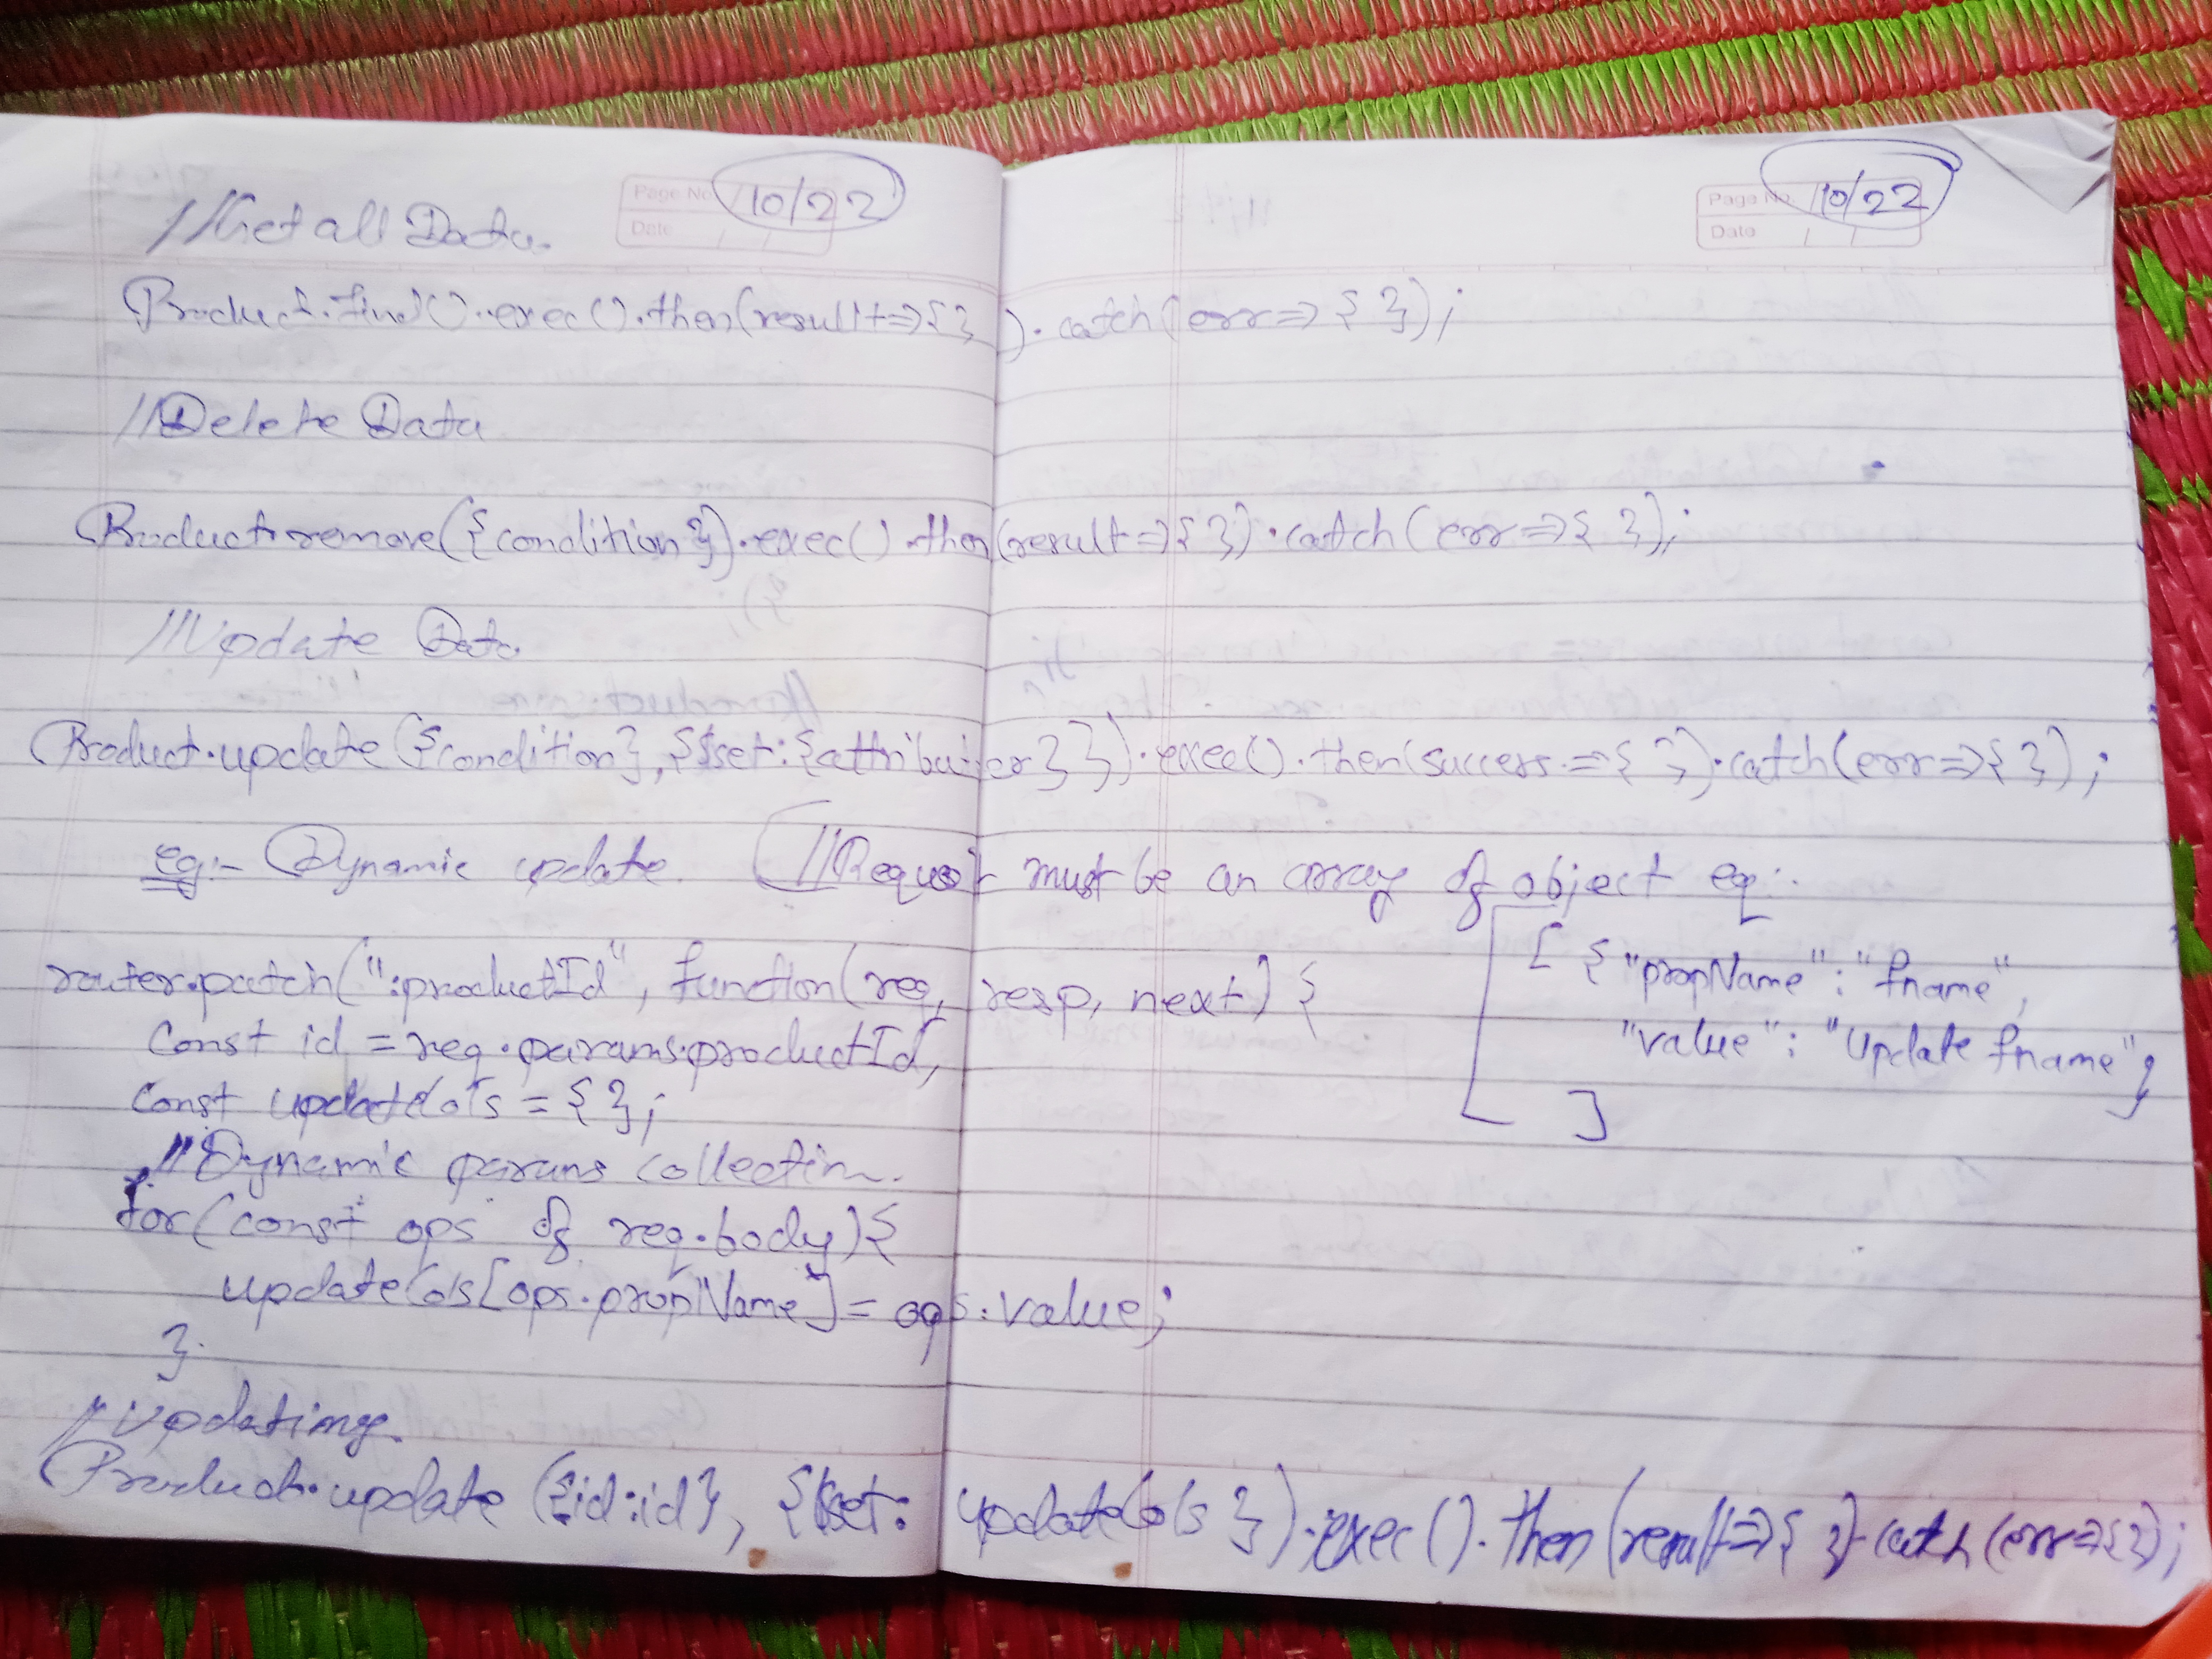 Page No. 10/22
Date / /
Page No. 10/22
Date / /
//Get all Data.
Product.find().exec().then(result=>{ }).catch(err=>{ });
//Delete Data
Product.remove({condition}).exec().then(result=>{ }).catch(err=>{ });
//Update Data
Product.update({condition},{$set:{attributes}}).exec().then(success=>{ }).catch(err=>{ });
eg:- Dynamic update. //Request must be an array of object eg:.
[ { "propName" : "fname",
"value" : "Update fname"}
]
router.patch(":productId", function(req, resp, next) {
Const id = req.params.productId,
Const updateCols = { };
//Dynamic params collection.
for(const ops of req.body){
updateCols[ops.propName] = ops.value;
}
//Updating.
Product.update ({id:id}, {$set: updateCols }).exec().then(result=>{ }).catch(err=>{ });